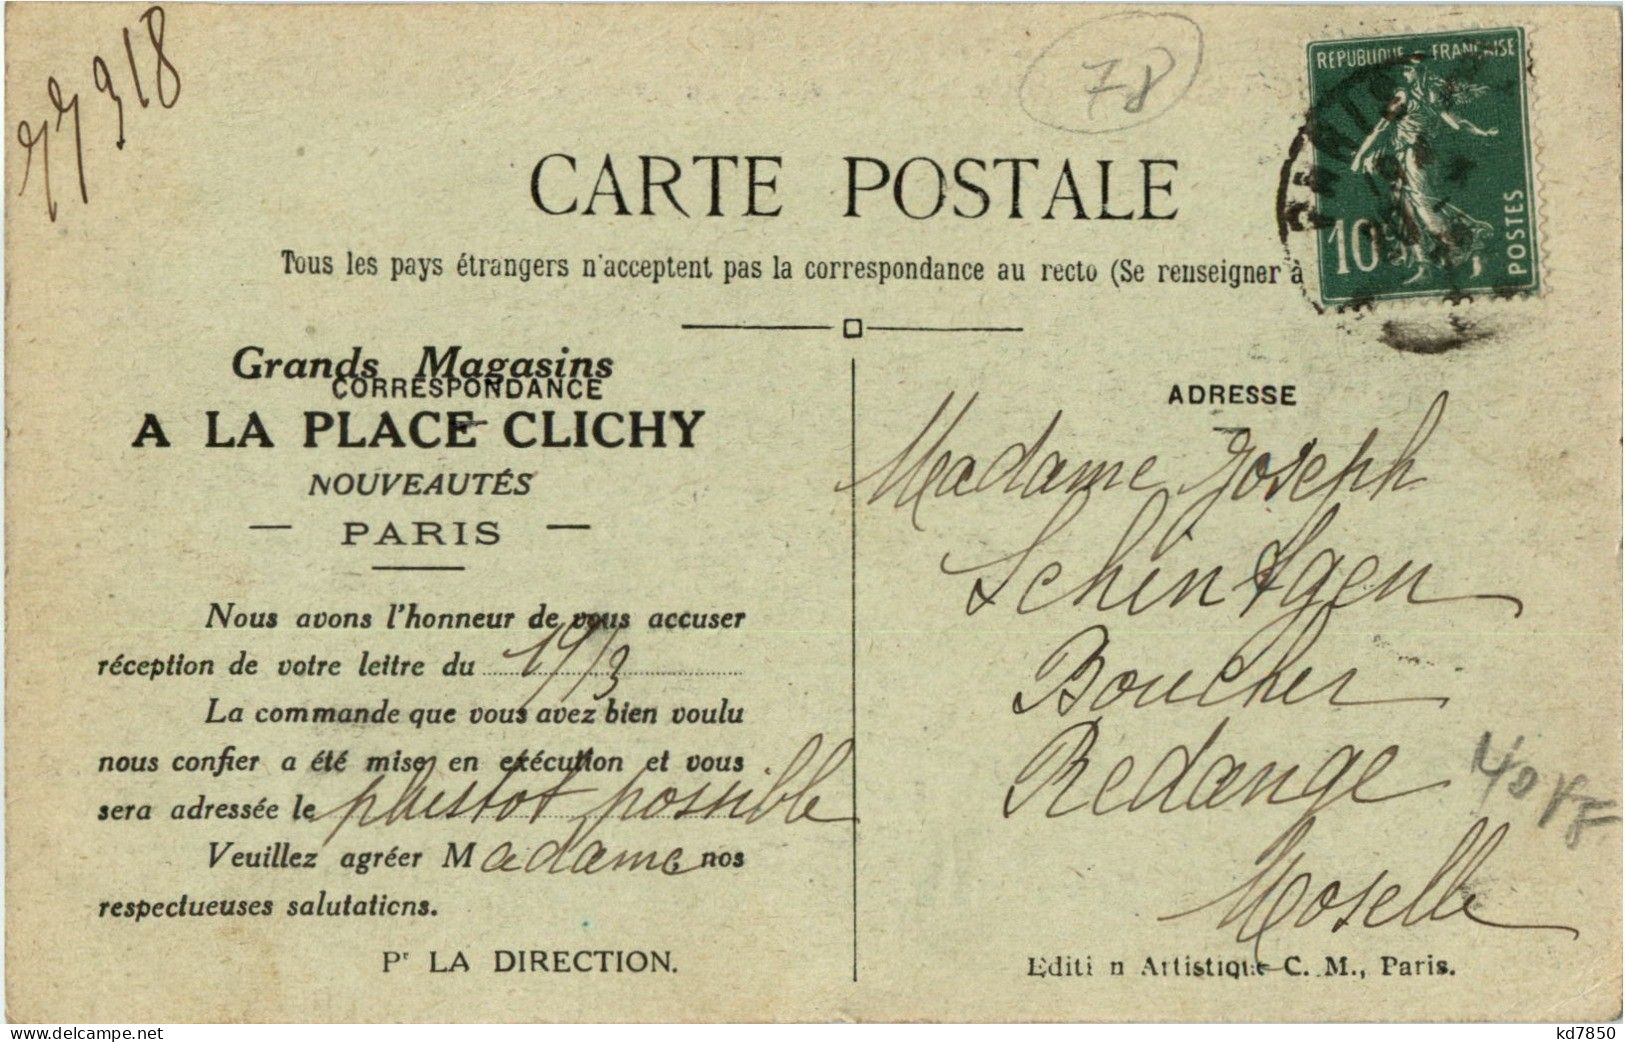 77918
78
RÉPUBLIQUE FRANÇAISE
PARIS
10c
POSTES
CARTE POSTALE
Tous les pays étrangers n'acceptent pas la correspondance au recto (Se renseigner à
Grands Magasins
CORRESPONDANCE
A LA PLACE CLICHY
NOUVEAUTÉS
— PARIS —
Nous avons l'honneur de vous accuser
réception de votre lettre du 19/3
La commande que vous avez bien voulu
nous confier a été mise en exécution et vous
sera adressée le plustot possible
Veuillez agréer Madame nos
respectueuses salutations.
Pr LA DIRECTION.
ADRESSE
Madame Joseph
Schintgen
Boucher
Redange
Moselle
Editi n Artistique C. M., Paris.
www.delcampe.net
kd7850